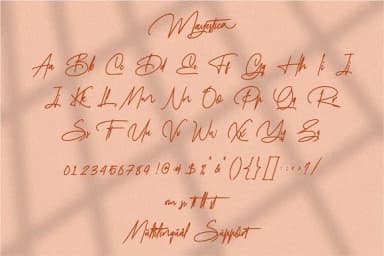 Mayestica
Aa Bb Cc Dd Ee Ff Gg Hh Ii Jj
Kk Ll Mm Nn Oo Pp Qq Rr
Ss Tt Uu Vv Ww Xx Yy Zz
0123456789 !@#$%^&*(){}[]:;<>?/
Multilingual Support